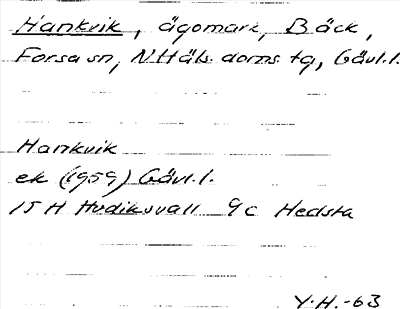 Hankvik, ägomark, Bäck,
Forsa sn, N.Häls. doms tg, Gävl.l.
Hankvik
ek (1959) Gävl.l.
15 H Hudiksvall 9c Hedsta
Y.H.-63